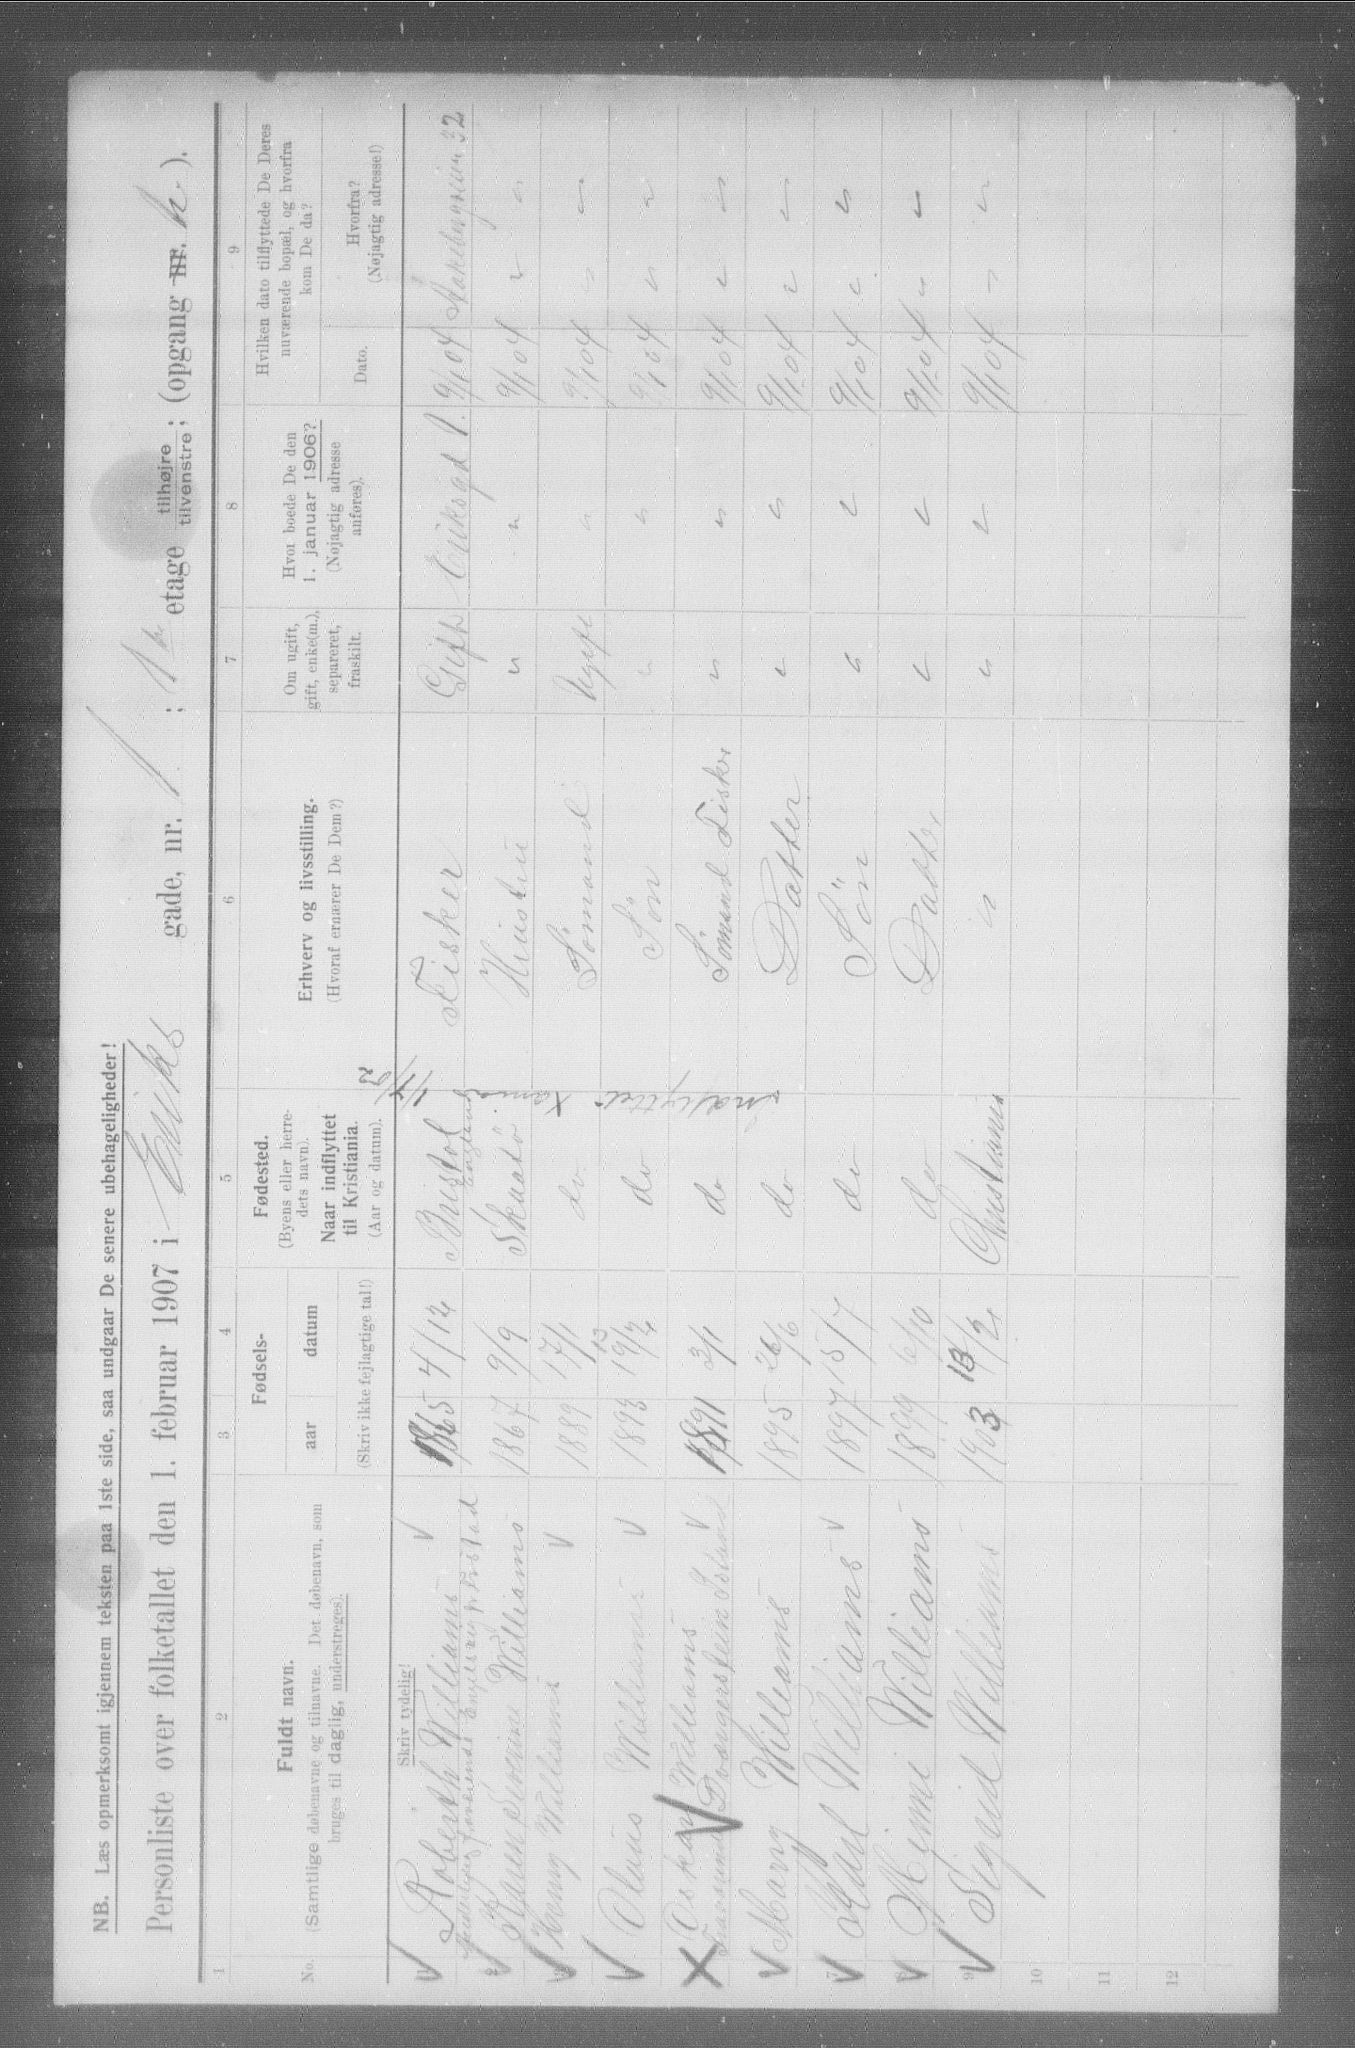 NB. Læs opmerksomt igjennem teksten paa 1ste side, saa undgaar De senere ubehageligheder!
Personliste over folketallet den 1. februar 1907 i Eriks gade, nr. 1 ; 1ste etage tilhøjre tilvenstre; (opgang nr. h ).
1 2 3 4 5 6 7 8 9
No. Fuldt navn. (Samtlige døbenavne og tilnavne. Det døbenavn, som bruges til daglig, understreges). Skriv tydelig!
Fødsels- aar datum (Skriv ikke fejlagtige tal!)
Fødested. (Byens eller herredets navn). Naar indflyttet til Kristiania. (Aar og datum).
Erhverv og livsstilling. (Hvoraf ernærer De Dem?)
Om ugift, gift, enke(m.), separeret, fraskilt.
Hvor boede De den 1. januar 1906? (Nøjagtig adresse anføres).
Hvilken dato tilflyttede De Deres nuværende bopæl, og hvorfra kom De da? Dato. Hvorfra? (Nøjagtig adresse!)
1 Roberth Williams 1865 4/12 Bristol England Fisker Gift Eriksgd 1. 9/1 04 32
2 Williams 1867 9/9 Skaatø Hustru " " 9/1 04 " "
3 Williams 1889 17/1 do Sömand Ugift " 9/1 04 " "
4 Williams 1893 do Sön " " 9/1 04 " "
5 Oskar Williams 1891 3/1 do Sömand Fisker " " 9/1 04 " "
6 Mary Williams 1895 26/6 do Datter " " 9/1 04 " "
7 Karl Williams 1897 15/7 do Sön " " 9/1 04 " "
8 Minni Williams 1899 6/10 do Datter " " 9/1 04 " "
9 Sigrid Williams 1903 Christiania " " " 9/1 04 " "
10
11
12